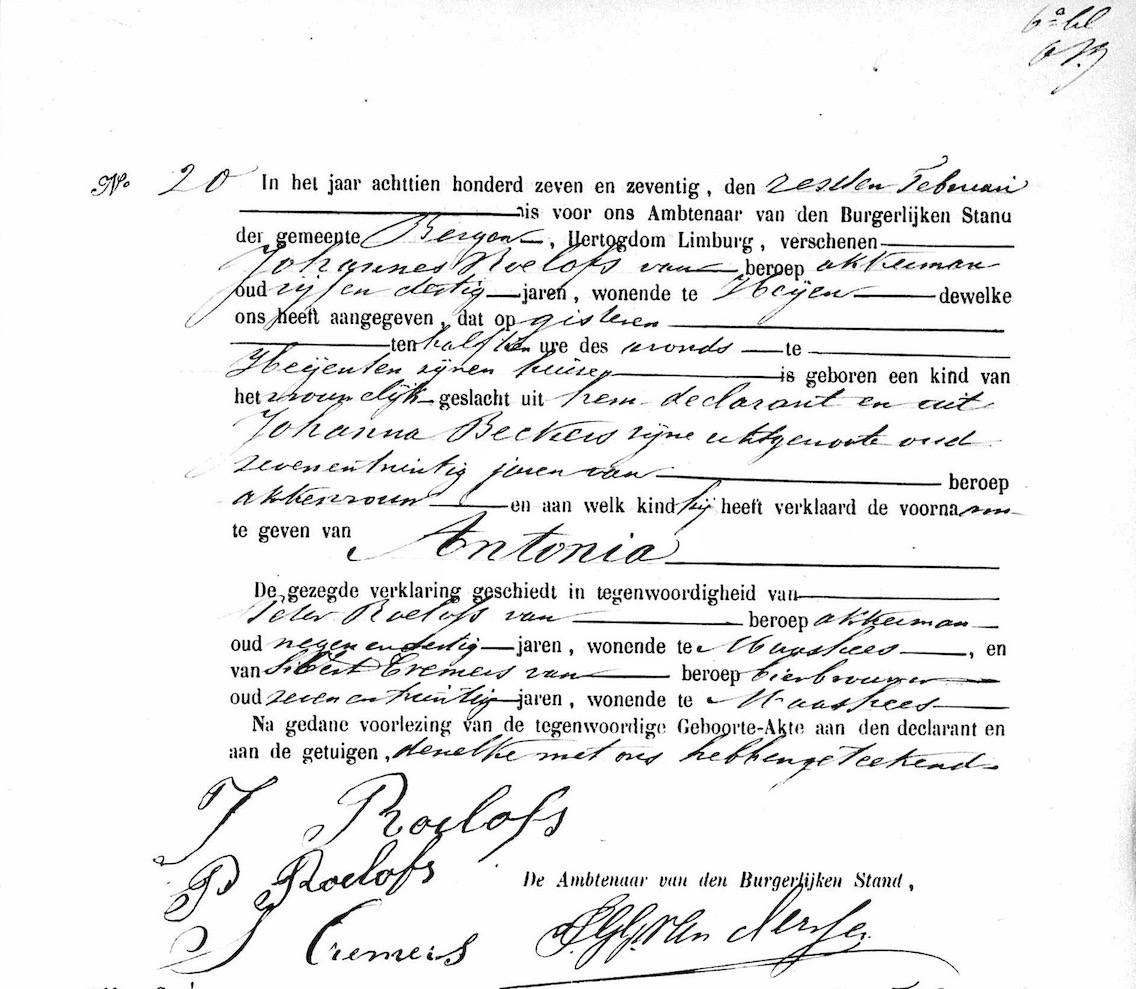 No. 20 In het jaar achttien honderd zeven en zeventig, den zesden Februari
is voor ons Ambtenaar van den Burgerlijken Stand
der gemeente Bergen, Hertogdom Limburg, verschenen
Johannes Roelofs van beroep akkerman
oud vijf en dertig jaren, wonende te Heijen dewelke
ons heeft aangegeven, dat op gisteren
ten half tien ure des avonds te
Heijen ten zijnen huize is geboren een kind van
het vrouwelijk geslacht uit hem declarant en uit
Johanna Beckers zijne echtgenoote oud
zevenentwintig jaren van beroep
akkervrouw en aan welk kind hij heeft verklaard de voornaam
te geven van Antonia
De gezegde verklaring geschiedt in tegenwoordigheid van
Peter Roelofs van beroep akkerman
oud negenendertig jaren, wonende te Maashees, en
van Sibert Cremers van beroep bierbrouwer
oud zevenentwintig jaren, wonende te Maashees
Na gedane voorlezing van de tegenwoordige Geboorte-Akte aan den declarant en
aan de getuigen, dewelke met ons hebben geteekend.
J Roelofs
P Roelofs
De Ambtenaar van den Burgerlijken Stand,
S Cremers